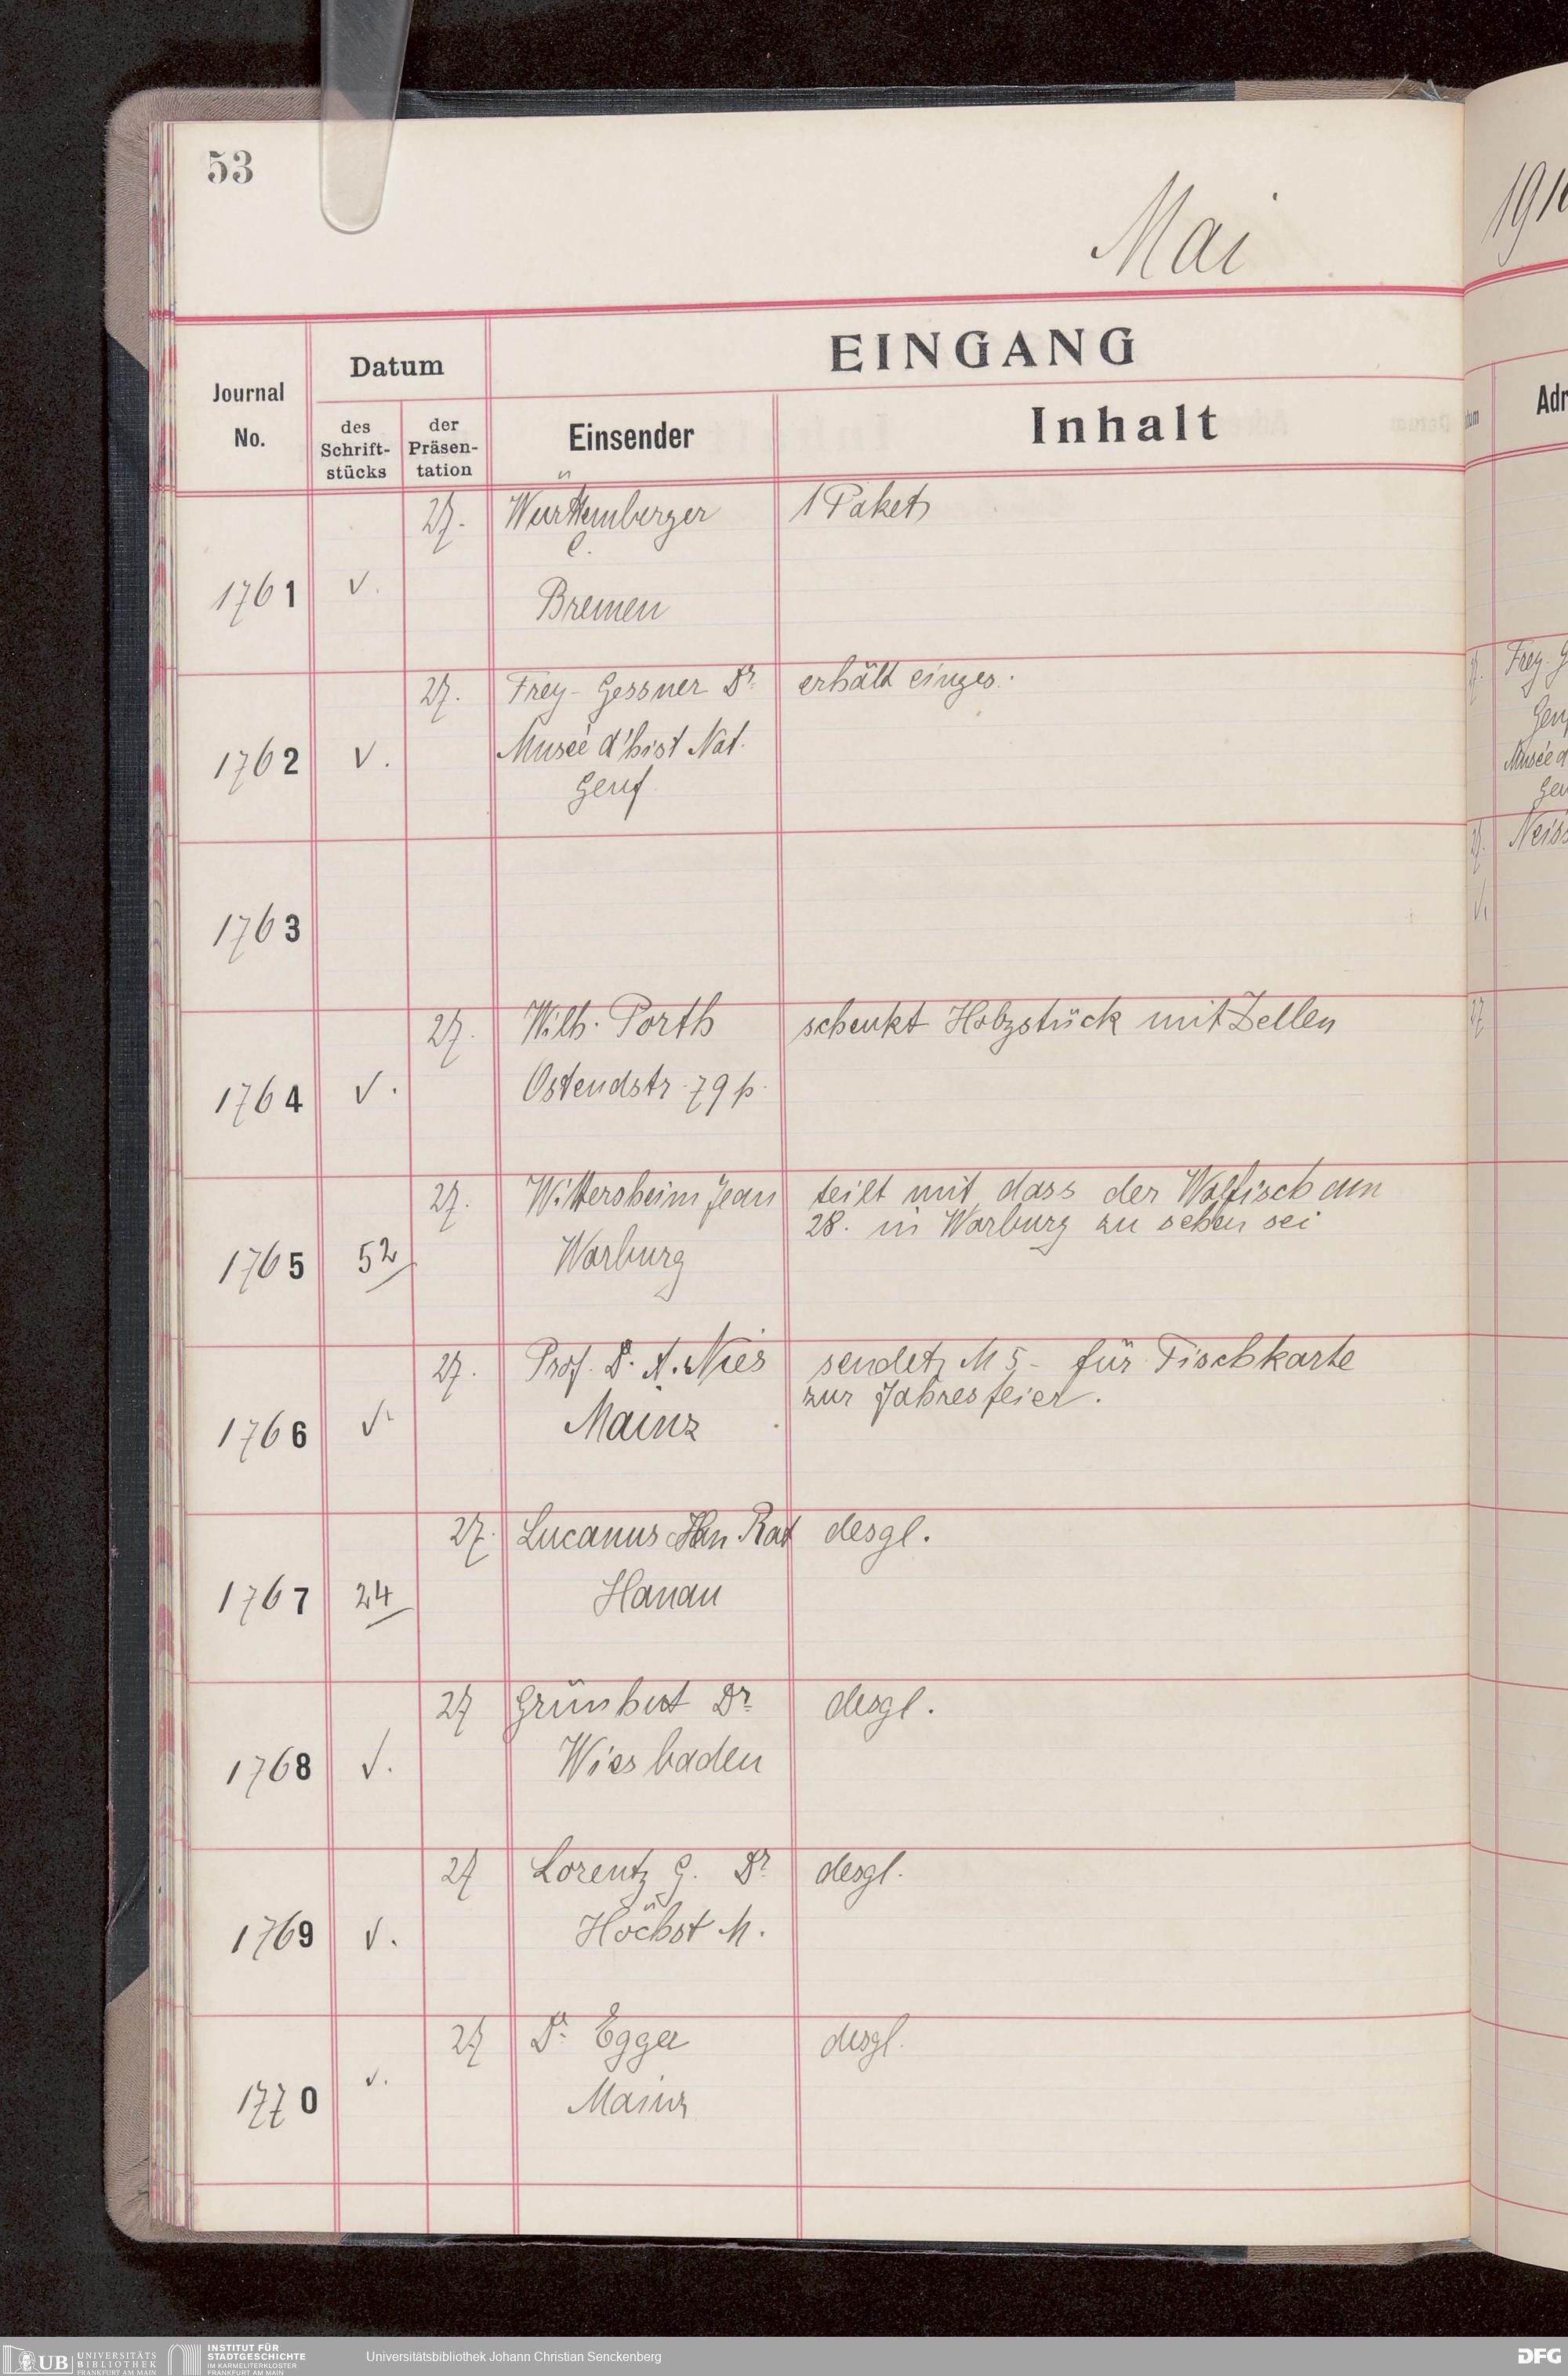 53
Mai
191
EINGANG
Datum
Journal
No.
des
Schrift-
stücks
der
Präsen-
tation
Einsender
Inhalt
Adr
1761 v. 27. Württemberger 1 Paket
C.
Bremen
1762 v. 27. Frey-Gessner Dr. erhält einges.
Museé d'hist Nat.
Genf
1763
1764 v. 27. Wilh. Porth schenkt Holzstück mit Zellen
Ostendstr. 79 p.
1765 52 27. Wittersheim Jean teilt mit, dass der Walfisch am
28. in Warburg zu sehen sei
Warburg
1766 v. 27. Prof. Dr. A. Nies sendet M 5- für Tischkarte
zur Jahresfeier.
Mainz
1767 24 27. Lucanus Rat desgl.
Hanau
1768 v. 27 Grünhut Dr. desgl.
Wiesbaden
1769 v. 27 Lorentz G. Dr. desgl.
Höchst M.
1770 v. 27 Dr. Egger desgl.
Mainz
Frey-G
Genf
Musée d
Gen
27. Neiss
v.
27
UB UNIVERSITÄTS
BIBLIOTHEK
FRANKFURT AM MAIN
INSTITUT FÜR
STADTGESCHICHTE
IM KARMELITERKLOSTER
FRANKFURT AM MAIN
Universitätsbibliothek Johann Christian Senckenberg
DFG